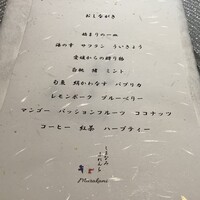 おしながき
始まりの一皿
海の幸 サフラン ういきょう
愛媛からの贈り物
白桃 鱧 ミント
旬魚 絹かわなす パプリカ
レモンポーク ブルーベリー
マンゴー パッションフルーツ ココナッツ
コーヒー 紅茶 ハーブティー
Murakami